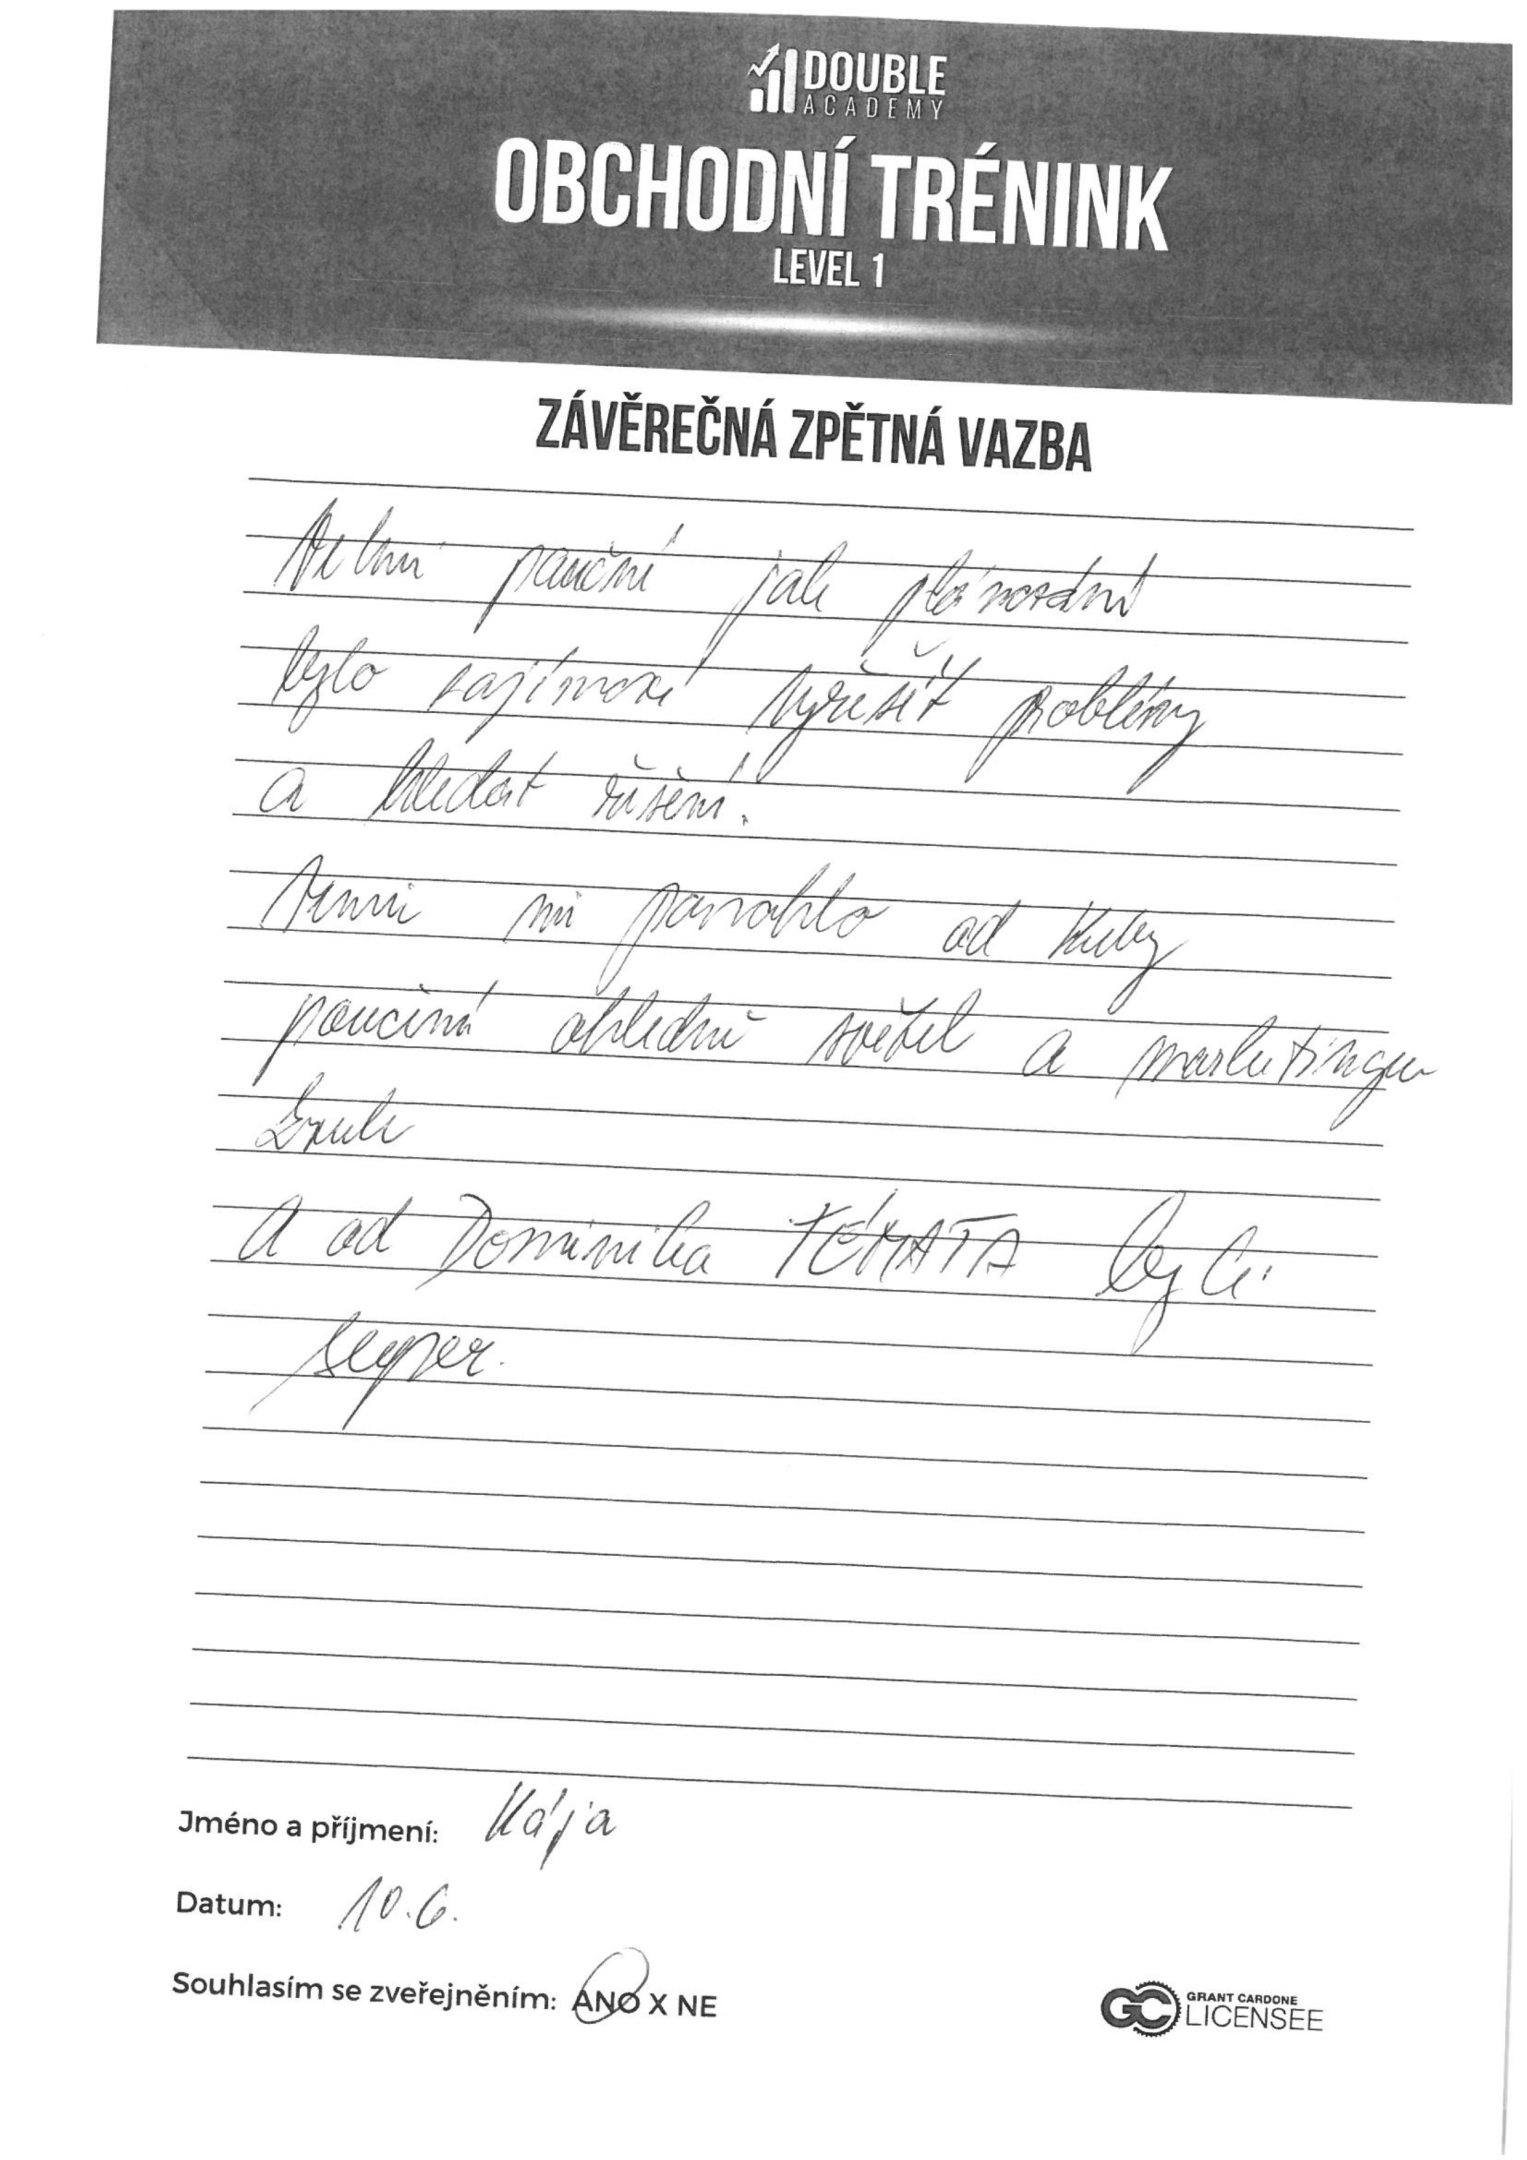 DOUBLE
ACADEMY
OBCHODNÍ TRÉNINK
LEVEL 1
ZÁVĚREČNÁ ZPĚTNÁ VAZBA
Velmi poučné jak plánování
bylo zajímavé vyřešit problémy
a hledat řešení.
Velmi mi pomohlo od Kuby
poučení ohledně světel a marketingu
bude
a od Dominika TÉMATA byli
super.
Jméno a příjmení: Kája
Datum: 10.6.
Souhlasím se zveřejněním: ANO X NE
GC GRANT CARDONE
LICENSEE